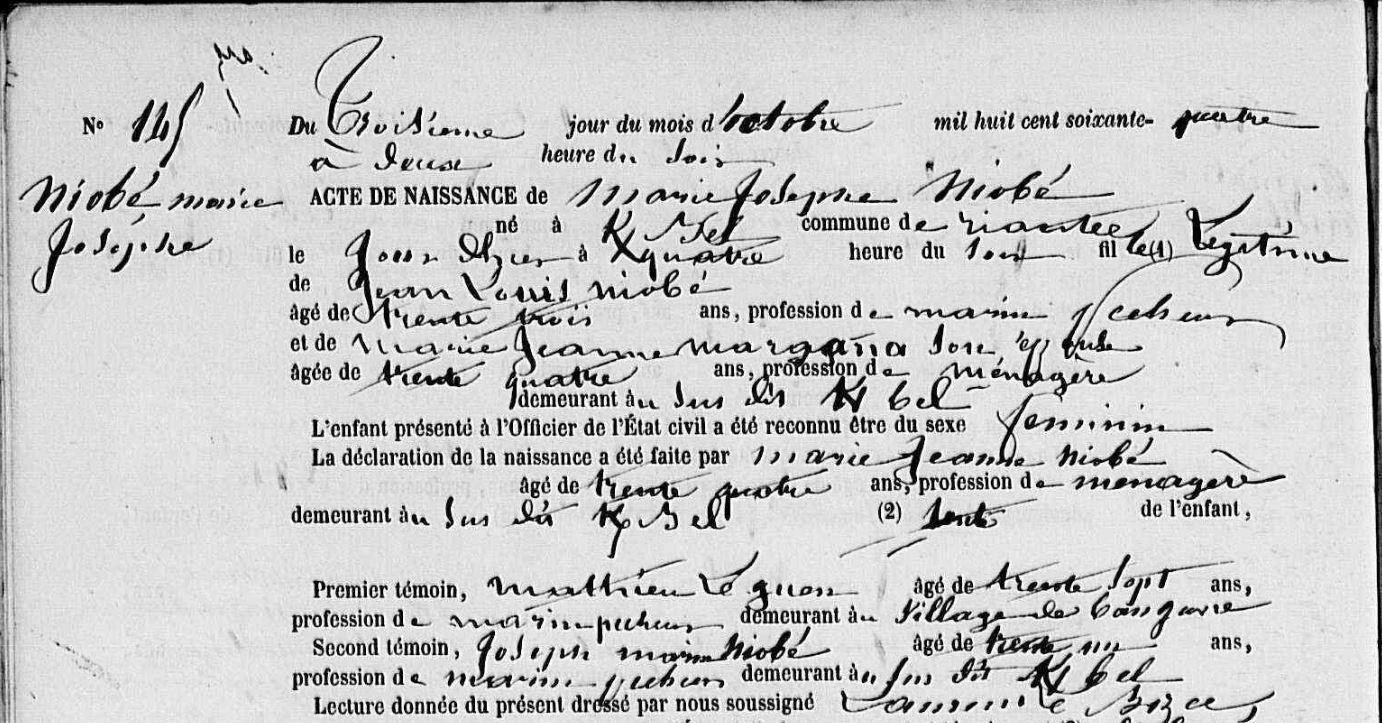 N° 145
Niobé marie
Josèphe
Du Troisieme jour du mois d'octobre mil huit cent soixante-quatre
à deux heure du soir
ACTE DE NAISSANCE de marie Josephe Niobé
né à K Bel commune de riantec
le Jour d'hier à quatre heure du soir fille (1) Legitime
de Jean Louis niobé
âgé de trente trois ans, profession de marin pecheur
et de marie Jeanne son épouse
âgée de trente quatre ans, profession de ménagère
demeurant au sus dit K bel
L'enfant présenté à l'Officier de l'État civil a été reconnu être du sexe feminin
La déclaration de la naissance a été faite par marie Jeanne niobé
âgé de trente quatre ans, profession de menagère
demeurant au sus dit K Bel (2) tente de l'enfant,
Premier témoin, mathieu Le guen âgé de trente sept ans,
profession de marin pecheur demeurant au village de
Second témoin, Joseph marie Niobé âgé de trente un ans,
profession de marin pecheur demeurant au sus dit K bel
Lecture donnée du présent dressé par nous soussigné